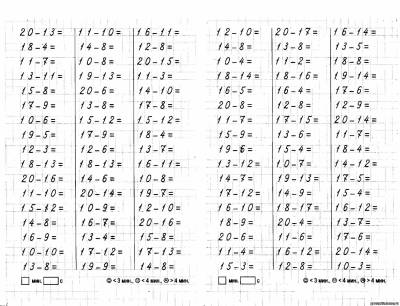 20-13= 11-10= 16-11=
18-4= 14-8= 12-8=
11-7= 10-8= 20-15=
13-11= 19-13= 11-3=
15-8= 20-6= 14-10=
17-9= 13-8= 17-8=
10-6= 15-12= 15-12=
19-5= 17-9= 18-4=
12-3= 12-6= 13-7=
18-13= 18-13= 16-11=
20-16= 14-6= 10-8=
11-10= 20-14= 19-7=
15-12= 10-9= 12-10=
14-8= 16-7= 20-16=
16-9= 13-4= 15-8=
10-10= 17-12= 17-13=
13-8= 19-9= 14-8=
МИН. С < 3 МИН. < 4 МИН. > 4 МИН.
12-10= 20-17= 16-14=
14-8= 13-8= 13-5=
10-4= 11-2= 18-8=
18-14= 18-16= 19-14=
16-5= 16-4= 17-6=
20-8= 12-8= 12-9=
11-7= 17-15= 20-14=
15-9= 13-6= 11-7=
19-6= 15-4= 18-4=
13-12= 10-7= 14-12=
14-9= 19-13= 17-5=
17-12= 14-9= 15-4=
16-10= 18-17= 16-9=
18-9= 20-4= 13-7=
13-6= 11-6= 17-6=
11-4= 16-12= 20-14=
15-3= 12-8= 10-3=
МИН. С < 3 МИН. < 4 МИН. > 4 МИН.